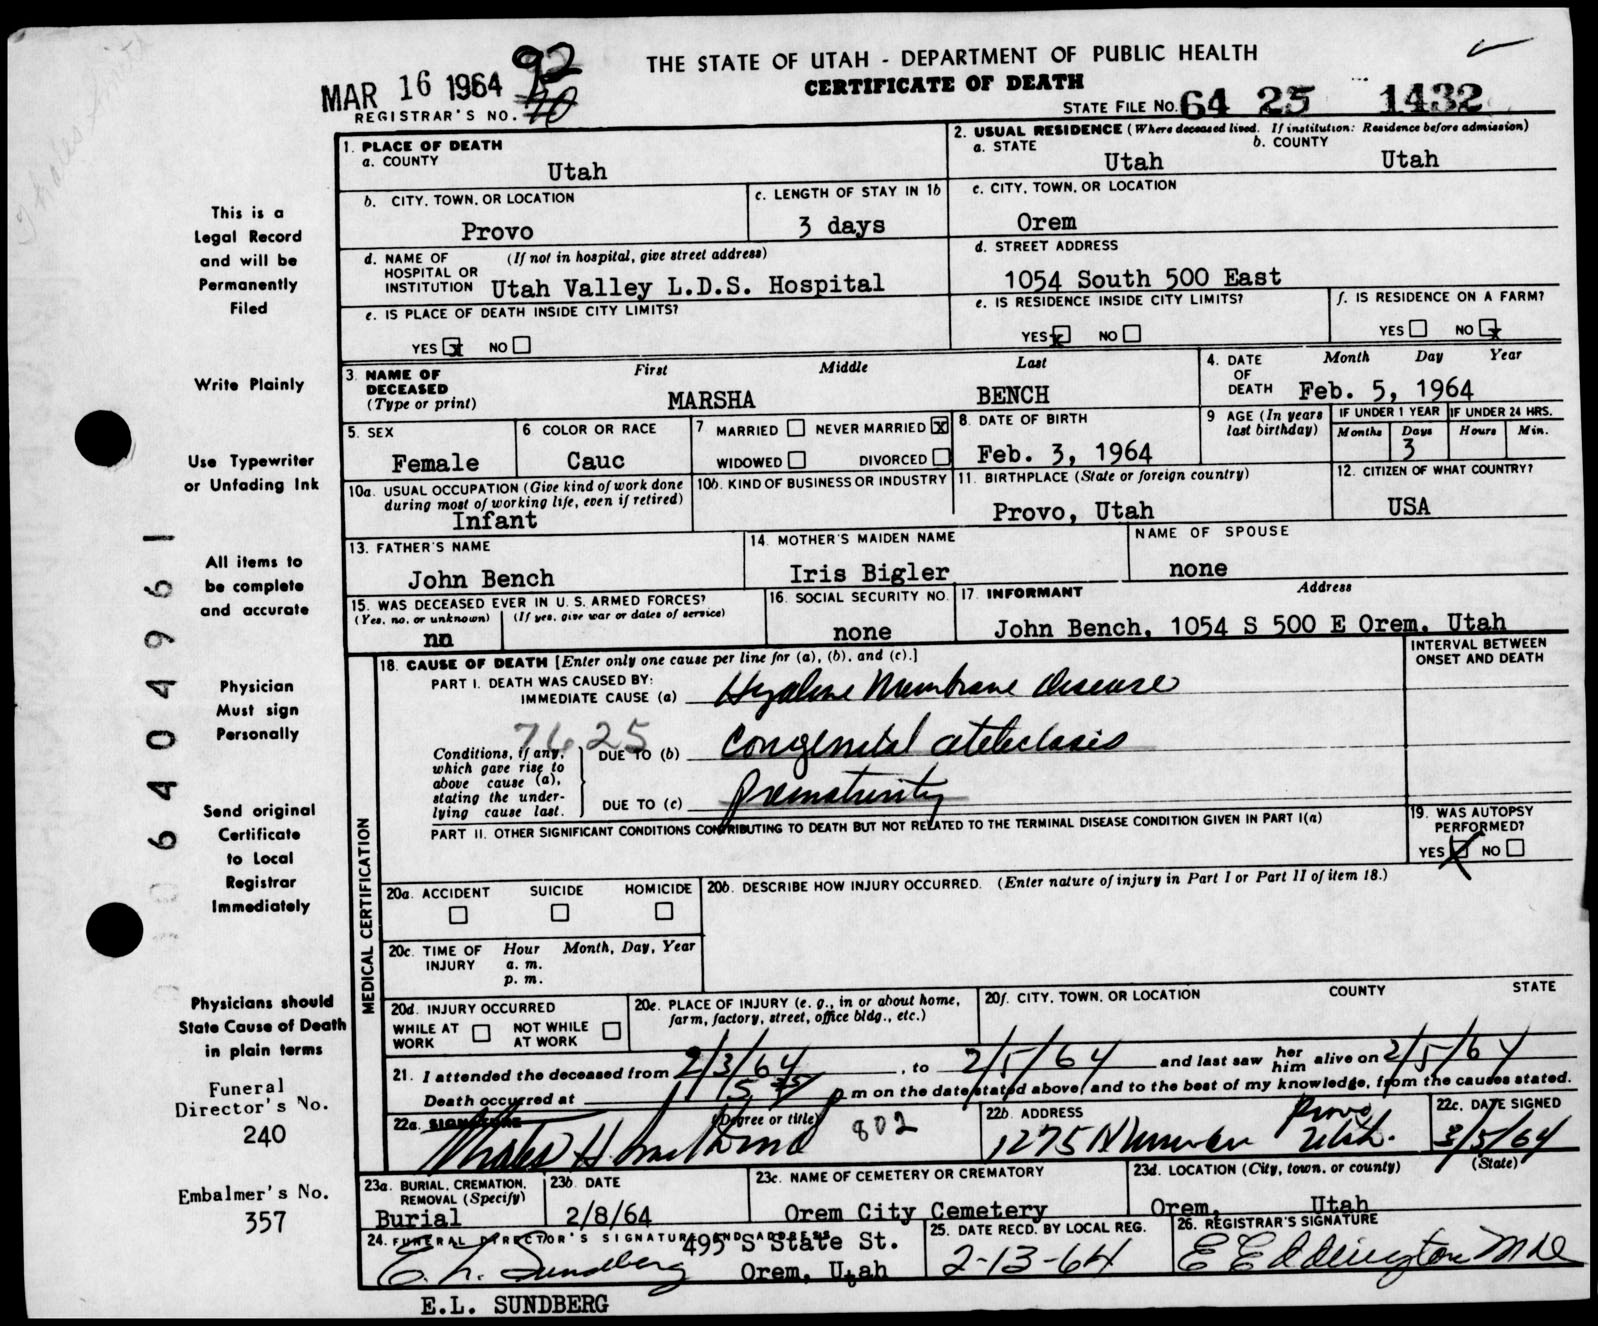 THE STATE OF UTAH - DEPARTMENT OF PUBLIC HEALTH
CERTIFICATE OF DEATH
MAR 16 1964 92
REGISTRAR'S NO. 70
STATE FILE NO. 64 25 1432
1. PLACE OF DEATH
a. COUNTY
Utah
2. USUAL RESIDENCE (Where deceased lived. If institution: Residence before admission)
a. STATE b. COUNTY
Utah Utah
b. CITY, TOWN, OR LOCATION
Provo
c. LENGTH OF STAY IN 1b
3 days
c. CITY, TOWN, OR LOCATION
Orem
d. NAME OF (If not in hospital, give street address)
HOSPITAL OR
INSTITUTION Utah Valley L.D.S. Hospital
d. STREET ADDRESS
1054 South 500 East
e. IS PLACE OF DEATH INSIDE CITY LIMITS?
YES x NO
e. IS RESIDENCE INSIDE CITY LIMITS?
YES x NO
f. IS RESIDENCE ON A FARM?
YES NO x
3. NAME OF
DECEASED
(Type or print)
First Middle Last
MARSHA BENCH
4. DATE Month Day Year
OF
DEATH Feb. 5, 1964
5. SEX
Female
6 COLOR OR RACE
Cauc
7 MARRIED NEVER MARRIED X
WIDOWED DIVORCED
8. DATE OF BIRTH
Feb. 3, 1964
9 AGE (In years
last birthday)
IF UNDER 1 YEAR IF UNDER 24 HRS.
Months Days Hours Min.
3
10a. USUAL OCCUPATION (Give kind of work done
during most of working life, even if retired)
Infant
10b. KIND OF BUSINESS OR INDUSTRY
11. BIRTHPLACE (State or foreign country)
Provo, Utah
12. CITIZEN OF WHAT COUNTRY?
USA
13. FATHER'S NAME
John Bench
14. MOTHER'S MAIDEN NAME
Iris Bigler
NAME OF SPOUSE
none
15. WAS DECEASED EVER IN U.S. ARMED FORCES?
(Yes, no, or unknown) (If yes, give war or dates of service)
nn
16. SOCIAL SECURITY NO.
none
17. INFORMANT Address
John Bench, 1054 S 500 E Orem, Utah
MEDICAL CERTIFICATION
18. CAUSE OF DEATH [Enter only one cause per line for (a), (b), and (c).]
INTERVAL BETWEEN
ONSET AND DEATH
PART I. DEATH WAS CAUSED BY:
IMMEDIATE CAUSE (a) Hyaline Membrane disease
7625
Conditions, if any,
which gave rise to
above cause (a),
stating the under-
lying cause last.
DUE TO (b) Congenital atelectasis
DUE TO (c) Prematurity
PART II. OTHER SIGNIFICANT CONDITIONS CONTRIBUTING TO DEATH BUT NOT RELATED TO THE TERMINAL DISEASE CONDITION GIVEN IN PART I(a)
19. WAS AUTOPSY
PERFORMED?
YES X NO
20a. ACCIDENT SUICIDE HOMICIDE
20b. DESCRIBE HOW INJURY OCCURRED. (Enter nature of injury in Part I or Part II of item 18.)
20c. TIME OF Hour Month, Day, Year
INJURY a. m.
p. m.
20d. INJURY OCCURRED
WHILE AT WORK NOT WHILE AT WORK
20e. PLACE OF INJURY (e. g., in or about home,
farm, factory, street, office bldg., etc.)
20f. CITY, TOWN, OR LOCATION COUNTY STATE
21. I attended the deceased from 2/3/64, to 2/5/64 and last saw her him alive on 2/5/64
Death occurred at p m on the date stated above, and to the best of my knowledge, from the causes stated.
22a. SIGNATURE (Degree or title)
802
22b. ADDRESS
1275 N Provo
Utah.
22c. DATE SIGNED
3/5/64
23a. BURIAL, CREMATION,
REMOVAL (Specify)
Burial
23b. DATE
2/8/64
23c. NAME OF CEMETERY OR CREMATORY
Orem City Cemetery
23d. LOCATION (City, town, or county) (State)
Orem, Utah
24. FUNERAL DIRECTOR'S SIGNATURE AND ADDRESS
E. L. Sundberg
495 S State St.
Orem, Utah
25. DATE RECD. BY LOCAL REG.
2-13-64
26. REGISTRAR'S SIGNATURE
E Eddington MD
E.L. SUNDBERG
This is a
Legal Record
and will be
Permanently
Filed
Write Plainly
Use Typewriter
or Unfading Ink
All items to
be complete
and accurate
Physician
Must sign
Personally
Send original
Certificate
to Local
Registrar
Immediately
Physicians should
State Cause of Death
in plain terms
Funeral
Director's No.
240
Embalmer's No.
357
06404961